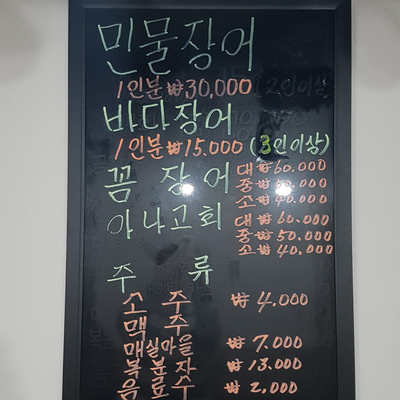 민물장어
1인분 ₩30,000 (2인이상)
바다장어
1인분 ₩15.000 (3인이상)
꼼 장어 대 ₩60.000
중 ₩50.000
소 ₩40.000
아나고회 대 ₩60.000
중 ₩50.000
소 ₩40,000
주 류
소 주 ₩4.000
맥 주
매실마을 ₩7.000
복분자 ₩13.000
음료수 ₩2,000